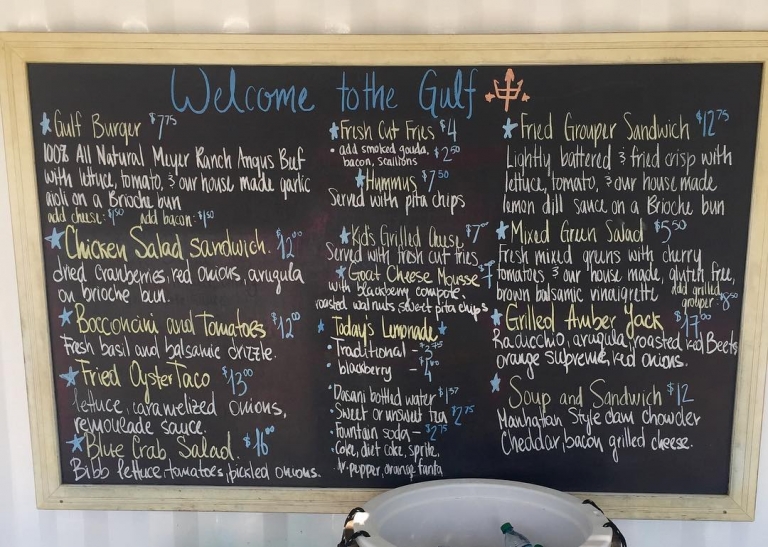 Welcome to the Gulf
Gulf Burger $7.75
100% All Natural Meyer Ranch Angus Beef
with lettuce, tomato, & our house made garlic
aioli on a Brioche bun
add cheese: $1.50 add bacon: $1.50
Chicken Salad sandwich. $12.00
dried cranberries, red onions, arugula
on brioche bun.
Bocconcini and Tomatoes $12.00
Fresh basil and balsamic drizzle.
Fried Oyster Taco $13.00
lettuce, caramelized onions,
remoulade sauce.
Blue Crab Salad. $16.00
Bibb lettuce, tomatoes, pickled onions.
Fresh Cut Fries $4
• add smoked gouda, $2.50
bacon, scallions
Hummus $7.50
Served with pita chips
Kid's Grilled Cheese $7
Served with fresh cut fries
Goat Cheese Mousse
with blackberry compote,
roasted walnuts sweet pita chips
Today's Lemonade
• Traditional -
• blackberry -
• Dasani bottled water
• Sweet or unsweet tea $2.75
• Fountain soda - $2.75
• Coke, diet coke, sprite,
dr. pepper, orange fanta
Fried Grouper Sandwich $12.75
Lightly battered & fried crisp with
lettuce, tomato, & our house made
lemon dill sauce on a Brioche bun
Mixed Green Salad $5.50
Fresh mixed greens with cherry
tomatoes & our house made, gluten free,
brown balsamic vinaigrette add grilled
grouper: $8.50
Grilled Amber Jack $17.00
Radicchio, arugula, roasted red Beets
orange supreme, red onions.
Soup and Sandwich $12
Manhattan Style clam chowder
Cheddar, bacon grilled cheese.